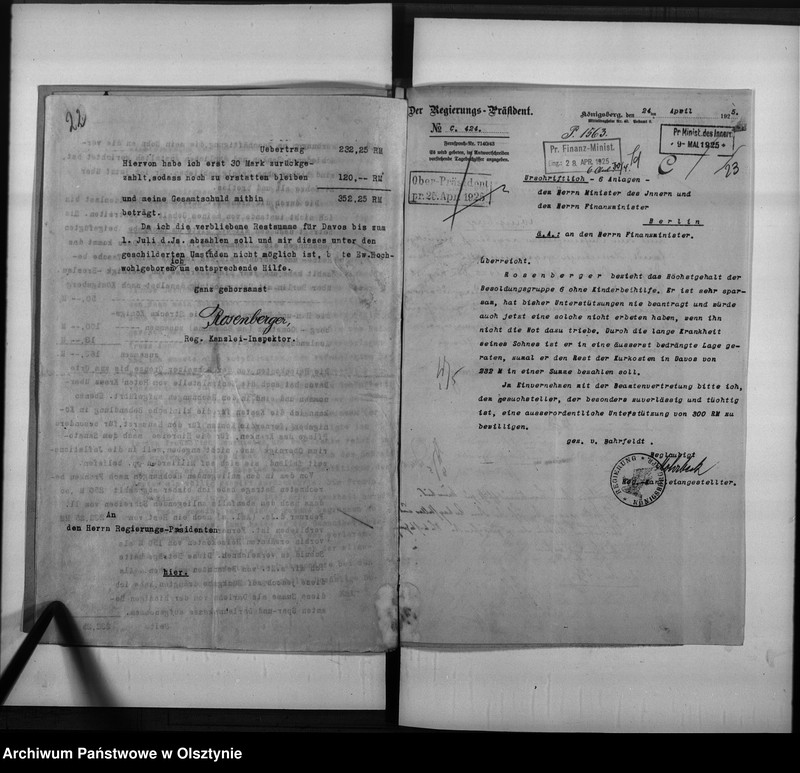 22
Uebertrag 232,25 RM
Hiervon habe ich erst 30 Mark zurückge-
zahlt, sodass noch zu erstatten bleiben 120,-- RM
und meine Gesamtschuld mithin 352,25 RM
beträgt.
Da ich die verbliebene Restsumme für Davos bis zum
1. Juli d.Js. abzahlen soll und mir dieses unter den
geschilderten Umständen nicht möglich ist, b te Ew.Hoch-
wohlgeboren ich um entsprechende Hilfe.
ganz gehorsamst
Rosenberger,
Reg. Kanzlei-Inspektor.
An
den Herrn Regierungs-Präsidenten
hier.
Der Regierungs-Präsident.
№ C. 424.
Fernspruch-Nr.
Es wird gebeten, bei Antwortschreiben
vorstehende Tagebuchnummer anzugeben.
Königsberg, den 24. April 1925.
P 1563.
Pr. Finanz-Minist.
Eing. 28 APR. 1925
Pr Minist. des Innern
9- MAI 1925
C 1/23
Ober-Präsident
pr. 25. Apr. 1925
Urschriftlich - 6 Anlagen -
dem Herrn Minister des Innern und
dem Herrn Finanzminister
Berlin
G.A.: an den Herrn Finanzminister.
überreicht.
Rosenberger bezieht das Höchstgehalt der
Besoldungsgruppe 6 ohne Kinderbeihilfe. Er ist sehr spar-
sam, hat bisher Unterstützungen nie beantragt und würde
auch jetzt eine solche nicht erbeten haben, wenn ihn
nicht die Not dazu triebe. Durch die lange Krankheit
seines Sohnes ist er in eine äusserst bedrängte Lage ge-
raten, zumal er den Rest der Kurkosten in Davos von
232 M in einer Summe bezahlen soll.
4/5
Im Einvernehmen mit der Beamtenvertretung bitte ich,
dem Gesuchsteller, der besonders zuverlässig und tüchtig
ist, eine ausserordentliche Unterstützung von 300 RM zu
bewilligen.
gez. v. Bahrfeldt.
Beglaubigt
Reg.-Kanzleiangestellter.
REGIERUNG KÖNIGSBERG
Archiwum Państwowe w Olsztynie